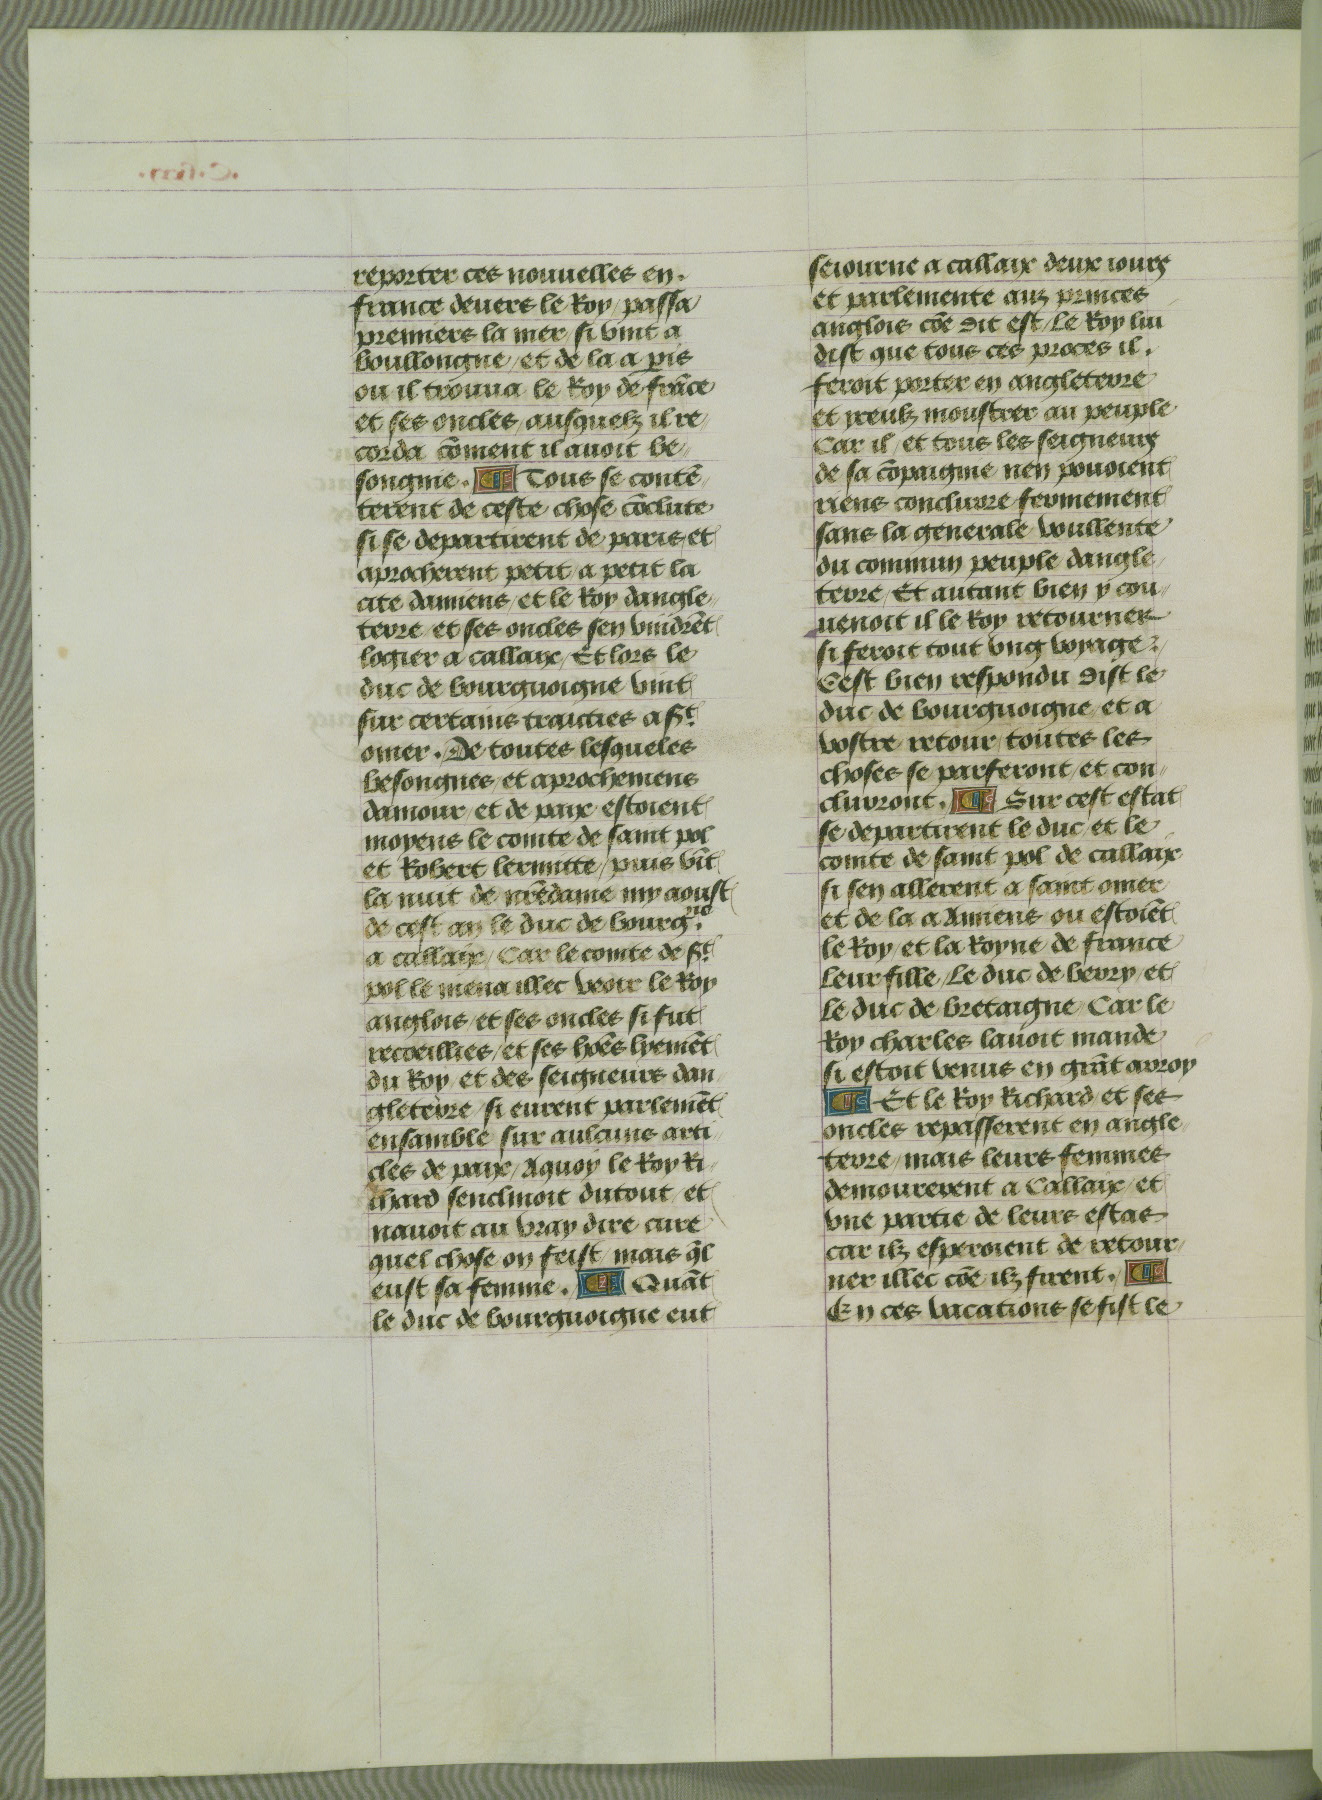 reporter ces nouuelles en.
france deuers le Roy / passa
premiers la mer / si vint a
boullongne / et de la a p̲is
ou il trouua le Roy de frãce
et ses oncles / ausquelz il re/
corda cõment il auoit be/
songnie. Tous se contẽ
terent de ceste chose cõclute
si se departirent de paris et
aprocherent petit a petit la
cite damiens / et le Roy dangle/
terre / et ses oncles sen vindrẽt
logier a callaix / Et lors le
duc de bourguoigne vint
sur certains traicties a st
omer. De toutes lesqueles
besongnes / et aprochemens
damour / et de paix estoient
moyens le comte de saint pol
et Robert lermitte / puis vĩt
la nuit de nrẽdame my aoust
de cest an le duc de bourg.nie
a callaix / Car le comte de st
pol le mena illec veoir le Roy
anglois / et ses oncles si fut
recoeillies / et ses hoẽs lyemẽt
du Roy / et des seigneurs dan
gleterre / si eurent parlemẽt
ensamble sur aulcuns arti
cles de paix / Aquoy le Roy Ri
chard senclinoit dutout / et
nauoit au vray dire cure
quel chose on feist / mais q̃l
eust sa femme. Quãt
le duc de bourguoigne eut
seiourne a callaix deux iours
et parlemente auz princes
anglois cõe dit est / Le Roy lui
dist que tous ces proces il.
feroit porter en angleterre
et yceulz moustrer au peuple
Car il / et tous les seigneurs
de sa cõpaignie nen pouoient
riens conclurre fermement
sans la generale voullente
du commun peuple dangle
terre / Et autant bien y cou
uenoit il le Roy retourner
si feroit tout vng voyage.
Cest bien respondu dist le
duc de bourguoigne / et a
vostre retour / toutes les
choses se parferont / et con
clurront. Sur cest estat
se departirent le duc / et le
comte de saint pol de callaix
si sen allerent a saint omer
et de la a Amiens ou estoiẽt
le Roy / et la Royne de france
Leur fille / Le duc de berry / et
Le duc de bretaigne / Car le
Roy charles lauoit mande
si estoit venus en grãt arroy
Et le Roy Richard / et ses
oncles repasserent en angle
terre / mais leurs femmes
demourerent a Callaix / et
vne partie de leurs estas
car ilz esperoient de retour/
ner illec cõe ilz firent.
En ces vacations se fist le